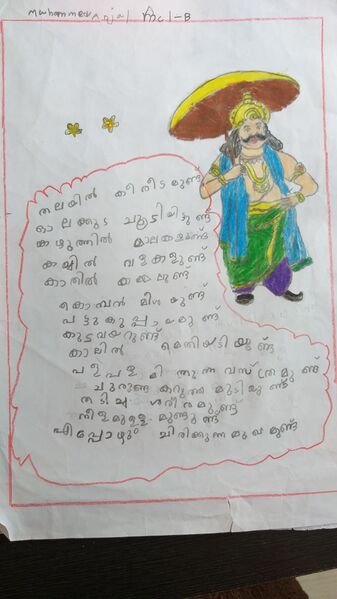 Muhammed Ajjal Mcl-B
തലയിൽ കിരീടമുണ്ട്
ഓലക്കുട ചൂടിയിട്ടുണ്ട്
കഴുത്തിൽ മാലകളുണ്ട്
കയ്യിൽ വളകളുണ്ട്
കാതിൽ കമ്മലുണ്ട്
കൊമ്പൻ മീശയുണ്ട്
പട്ടുകുപ്പായമുണ്ട്
കുടവയറുണ്ട്
കാലിൽ മെതിയടിയുണ്ട്
പളപളമിന്നുന്ന വസ്ത്രമുണ്ട്
ചുരുണ്ട കറുത്ത മുടിയുണ്ട്
തടിച്ച ശരീരമുണ്ട്
നീളമുള്ള മുണ്ടുണ്ട്
എപ്പോഴും ചിരിക്കുന്ന മുഖമുണ്ട്